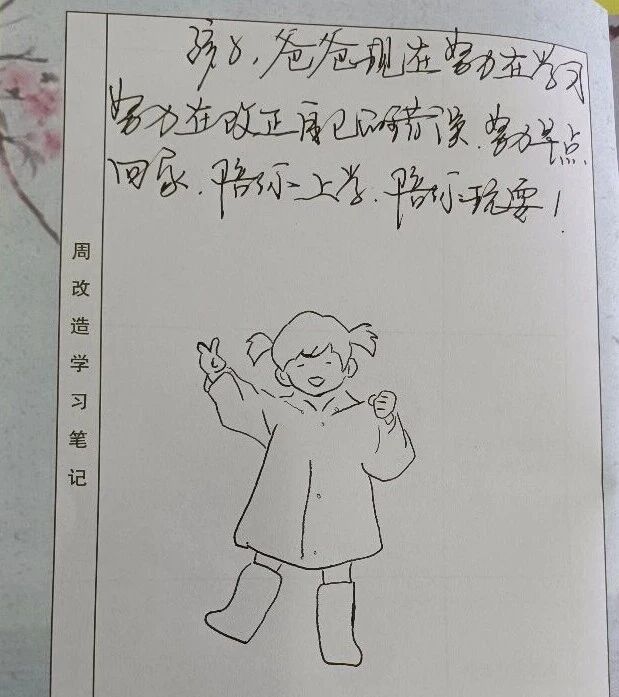 孩子，爸爸现在努力在学习
努力在改正自己的错误、努力早点
回家、陪你上学、陪你玩耍！
周改造学习笔记